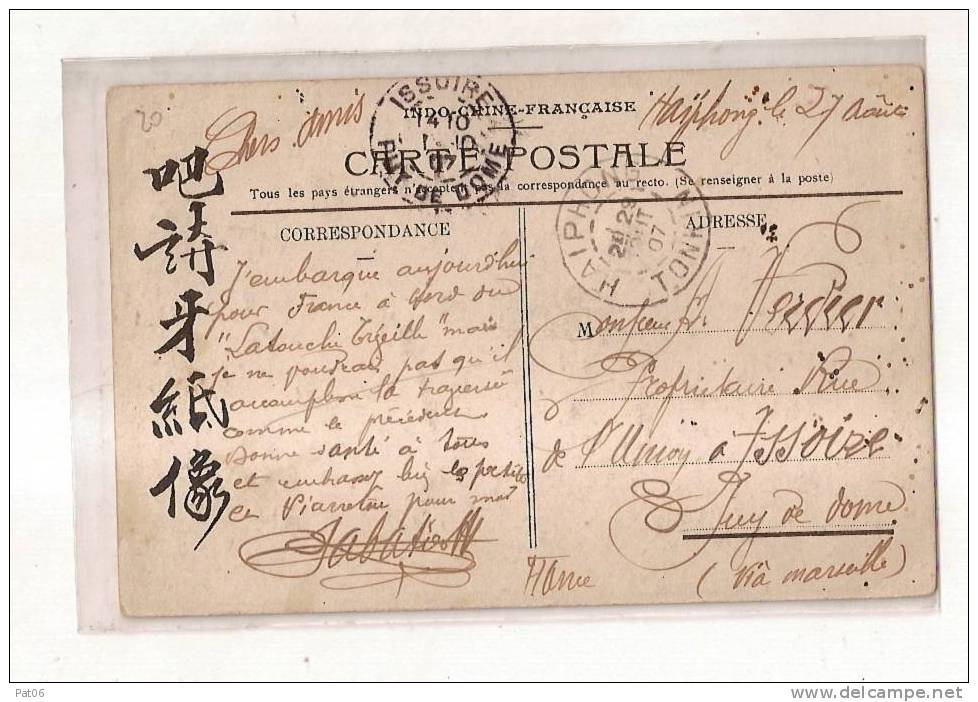 20
Chers amis
Haïphong le 27 Août
ISSOIRE
14 10
07
PUY DE DOME
INDO-CHINE-FRANÇAISE
CARTE POSTALE
Tous les pays étrangers n'acceptent pas la correspondance au recto. (Se renseigner à la poste)
吧
請
牙
紙
像
CORRESPONDANCE
J'embarque aujourdhui
pour France à bord du
"Latouche Tréville" mais
je ne voudrais pas qu'il
accomplisse la traversée
comme le précédent
Bonne santé à tous
et embrassez bien les petits
et Pierrette pour moi
Sabatier
HAIPHONG
TONKIN
29 AOUT
07
ADRESSE
Monsieur Verdier
Propriétaire Rue
de l'Union à Issoire
Puy de dome
France
(Via marseille)
Pat06
www.delcampe.net